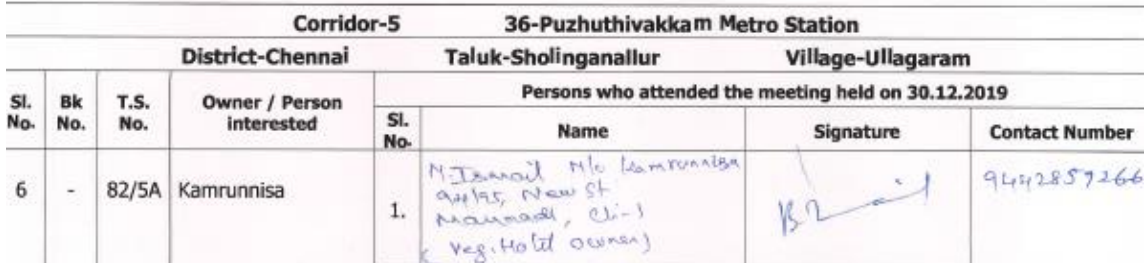 Corridor-5 36-Puzhuthivakkam Metro Station
District-Chennai Taluk-Sholinganallur Village-Ullagaram
Sl. No. Bk No. T.S. No. Owner / Person interested Persons who attended the meeting held on 30.12.2019
Sl. No. Name Signature Contact Number
6 - 82/5A Kamrunnisa 1. N. Ismail M/o Kamrunnisa 9442859266
94/95, New St
Mannadi, Ch-1
(Veg. Hotel owner)